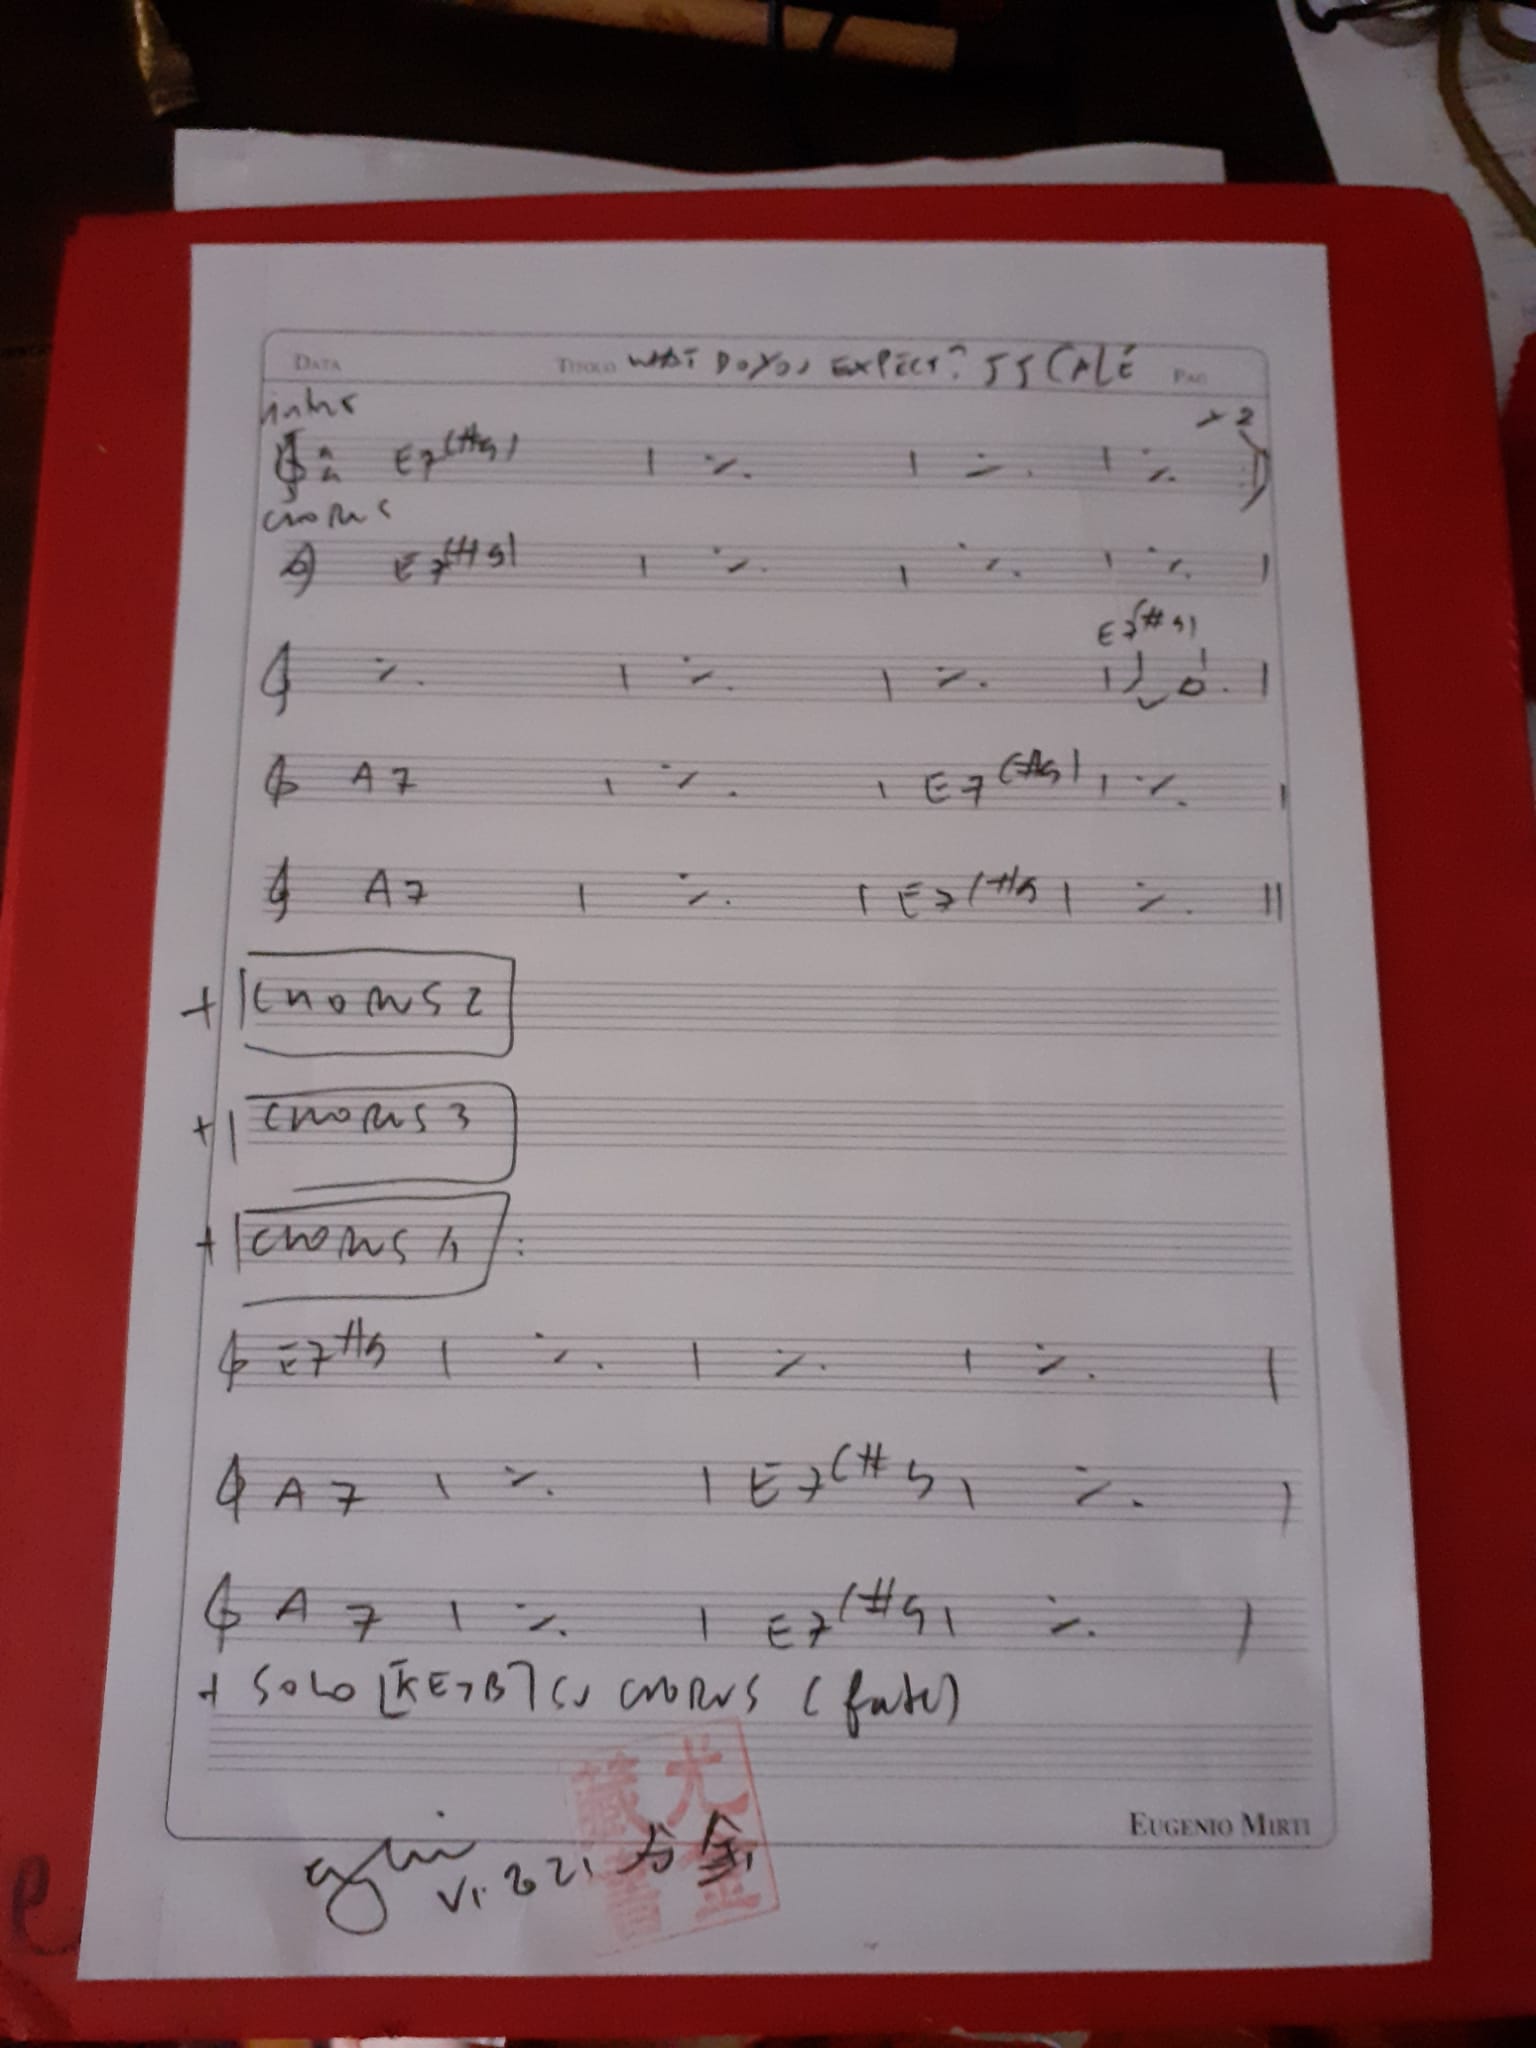 DATA TITOLO WHAT DO YOU EXPECT? JJ CALE PAG
intro x2
4 4 E7(#9) | ٪ | ٪ | ٪
CHORUS
E7(#9) | ٪ | ٪ | ٪ |
E7(#9)
٪ | ٪ | ٪ | |
A7 | ٪ | E7(#9) | ٪ |
A7 | ٪ | E7(#9) | ٪ ||
+ CHORUS 2
+ CHORUS 3
+ CHORUS 4 :
E7#9 | ٪ | ٪ | ٪ |
A7 | ٪ | E7(#9 | ٪ |
A7 | ٪ | E7(#9 | ٪ |
+ SOLO [KEYB] SU CHORUS (fade)
EUGENIO MIRTI
VI. 2021